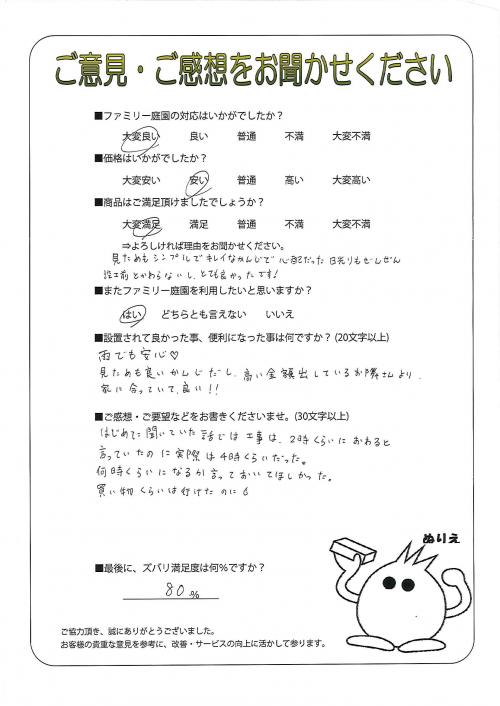 ご意見・ご感想をお聞かせください
■ファミリー庭園の対応はいかがでしたか？
大変良い 良い 普通 不満 大変不満
■価格はいかがでしたか？
大変安い 安い 普通 高い 大変高い
■商品はご満足頂けましたでしょうか？
大変満足 満足 普通 不満 大変不満
⇒よろしければ理由をお聞かせください。
見ためもシンプルでキレイなかんじで心配だった日光もぜんぜん
設工前とかわらないし、とても良かったです！
■またファミリー庭園を利用したいと思いますか？
はい どちらとも言えない いいえ
■設置されて良かった事、便利になった事は何ですか？(20文字以上)
雨でも安心♡
見ためも良いかんじだし、高い金額出しているお隣さんより、
家に合っていて、良い！！
■ご感想・ご要望などをお書きくださいませ。(30文字以上)
はじめに聞いていた話では工事は、2時くらいにおわると
言っていたのに実際は4時くらいだった。
何時くらいになるか言っておいてほしかった。
買い物くらいは行けたのに
ぬりえ
■最後に、ズバリ満足度は何％ですか？
80％
ご協力頂き、誠にありがとうございました。
お客様の貴重な意見を参考に、改善・サービスの向上に活かして参ります。